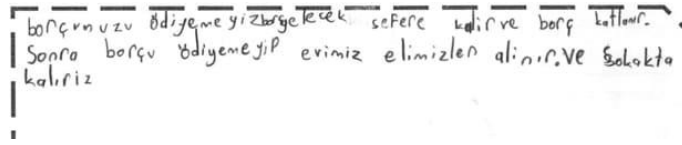 borçumuzu ödiyemeyiz borç gelecek sefere kalir ve borç katlanır.
Sonra borçu ödiyemeyip evimiz elimizlen alinır. Ve Sokakta
kalıriz